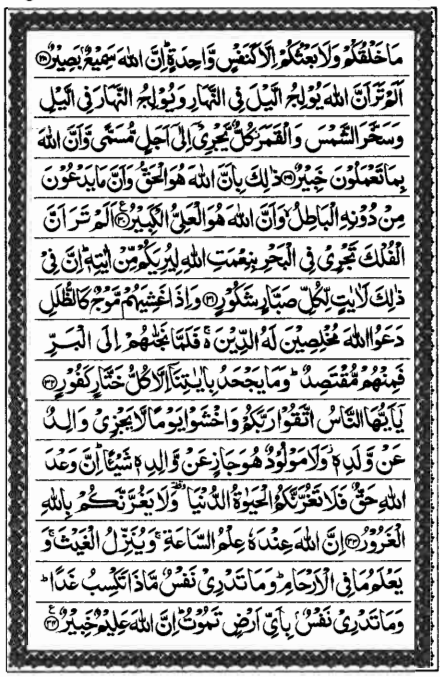 مَا خَلْقُكُمْ وَلَا بَعْثُكُمْ اِلَّا كَنَفْسٍ وَّاحِدَةٍ ؕ اِنَّ اللهَ سَمِيْعٌۢ بَصِيْرٌ ﴿۲۸﴾
اَلَمْ تَرَ اَنَّ اللهَ يُوْلِجُ الَّيْلَ فِى النَّهَارِ وَ يُوْلِجُ النَّهَارَ فِى الَّيْلِ
وَ سَخَّرَ الشَّمْسَ وَ الْقَمَرَ كُلٌّ يَّجْرِىْۤ اِلٰٓى اَجَلٍ مُّسَمًّى وَّ اَنَّ اللهَ
بِمَا تَعْمَلُوْنَ خَبِيْرٌ ﴿۲۹﴾ ذٰلِكَ بِاَنَّ اللهَ هُوَ الْحَقُّ وَ اَنَّ مَا يَدْعُوْنَ
مِنْ دُوْنِهِ الْبَاطِلُ ۙ وَ اَنَّ اللهَ هُوَ الْعَلِىُّ الْكَبِيْرُ ﴿۳۰﴾ اَلَمْ تَرَ اَنَّ
الْفُلْكَ تَجْرِىْ فِى الْبَحْرِ بِنِعْمَتِ اللهِ لِيُرِيَكُمْ مِّنْ اٰيٰتِهٖ ؕ اِنَّ فِىْ
ذٰلِكَ لَاٰيٰتٍ لِّكُلِّ صَبَّارٍ شَكُوْرٍ ﴿۳۱﴾ وَ اِذَا غَشِيَهُمْ مَّوْجٌ كَالظُّلَلِ
دَعَوُا اللهَ مُخْلِصِيْنَ لَهُ الدِّيْنَ ۚ فَلَمَّا نَجّٰىهُمْ اِلَى الْبَرِّ
فَمِنْهُمْ مُّقْتَصِدٌ ؕ وَ مَا يَجْحَدُ بِاٰيٰتِنَاۤ اِلَّا كُلُّ خَتَّارٍ كَفُوْرٍ ﴿۳۲﴾
يٰۤاَيُّهَا النَّاسُ اتَّقُوْا رَبَّكُمْ وَ اخْشَوْا يَوْمًا لَّا يَجْزِىْ وَالِدٌ
عَنْ وَّلَدِهٖ ؗ وَ لَا مَوْلُوْدٌ هُوَ جَازٍ عَنْ وَّالِدِهٖ شَيْئًا ؕ اِنَّ وَعْدَ
اللهِ حَقٌّ فَلَا تَغُرَّنَّكُمُ الْحَيٰوةُ الدُّنْيَا ٝ وَ لَا يَغُرَّنَّكُمْ بِاللهِ
الْغَرُوْرُ ﴿۳۳﴾ اِنَّ اللهَ عِنْدَهٗ عِلْمُ السَّاعَةِ ۚ وَ يُنَزِّلُ الْغَيْثَ ۚ وَ
يَعْلَمُ مَا فِى الْاَرْحَامِ ؕ وَ مَا تَدْرِىْ نَفْسٌ مَّاذَا تَكْسِبُ غَدًا ؕ
وَ مَا تَدْرِىْ نَفْسٌۢ بِاَىِّ اَرْضٍ تَمُوْتُ ؕ اِنَّ اللهَ عَلِيْمٌ خَبِيْرٌ ﴿۳۴﴾